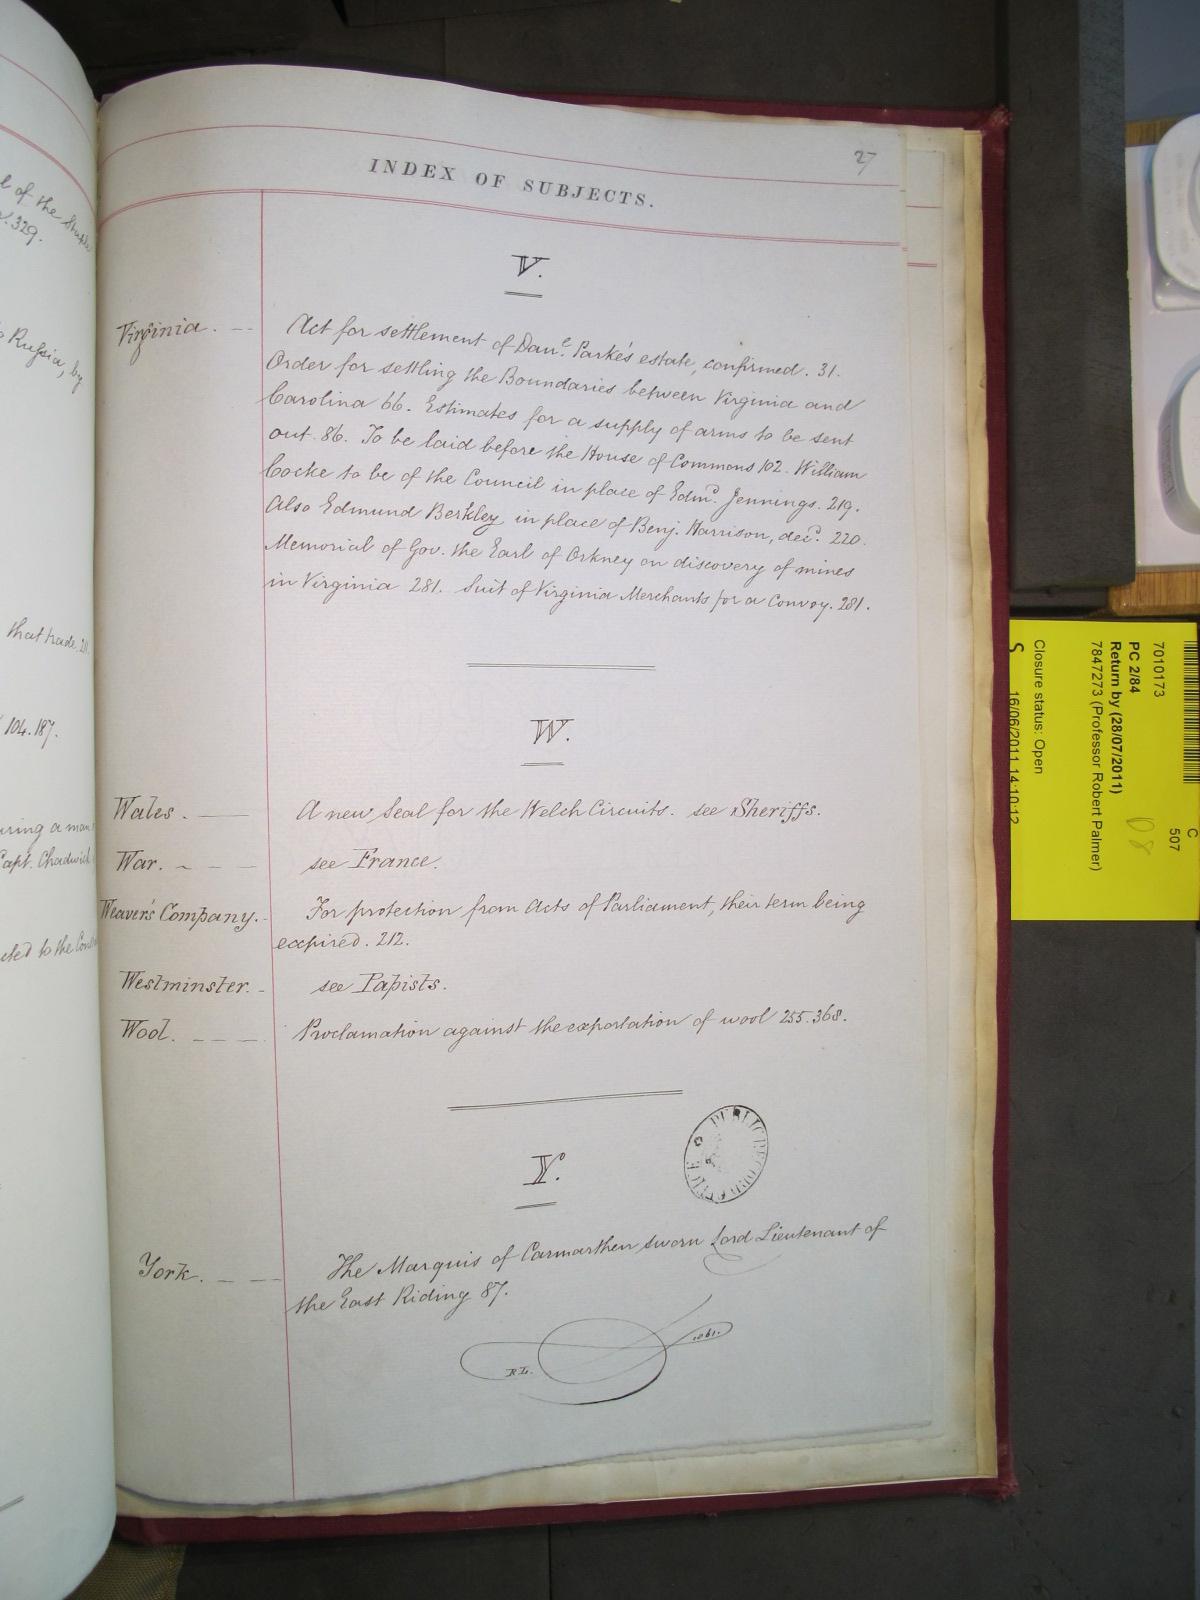 l of the
329.
Russia, by
that trade. 211
104. 187.
uring a man
Capt. Chadwick
cted to the
27
INDEX OF SUBJECTS.
V.
Virginia. Act for settlement of Danl. Parke's estate, confirmed. 31.
Order for settling the Boundaries between Virginia and
Carolina 66. Estimates for a supply of arms to be sent
out. 86. To be laid before the House of Commons 102. William
Cocke to be of the Council in place of Edmd. Jennings. 219.
Also Edmund Berkley in place of Benj. Harrison, decd. 220.
Memorial of Gov. the Earl of Orkney on discovery of mines
in Virginia 281. Suit of Virginia Merchants for a Convoy. 281.
W.
Wales. A new Seal for the Welch Circuits. see Sheriffs.
War. see France.
Weaver's Company. For protection from Acts of Parliament, their term being
expired. 212.
Westminster. see Papists.
Wool. Proclamation against the exportation of wool 255. 368.
PUBLIC RECORD OFFICE
Y.
York. The Marquis of Carmarthen sworn Lord Lieutenant of
the East Riding 87.
RL. 1861.
C
507
7010173
PC 2/84
Return by (28/07/2011)
7847273 (Professor Robert Palmer)
Closure status: Open
S 16/06/2011 14:10:12